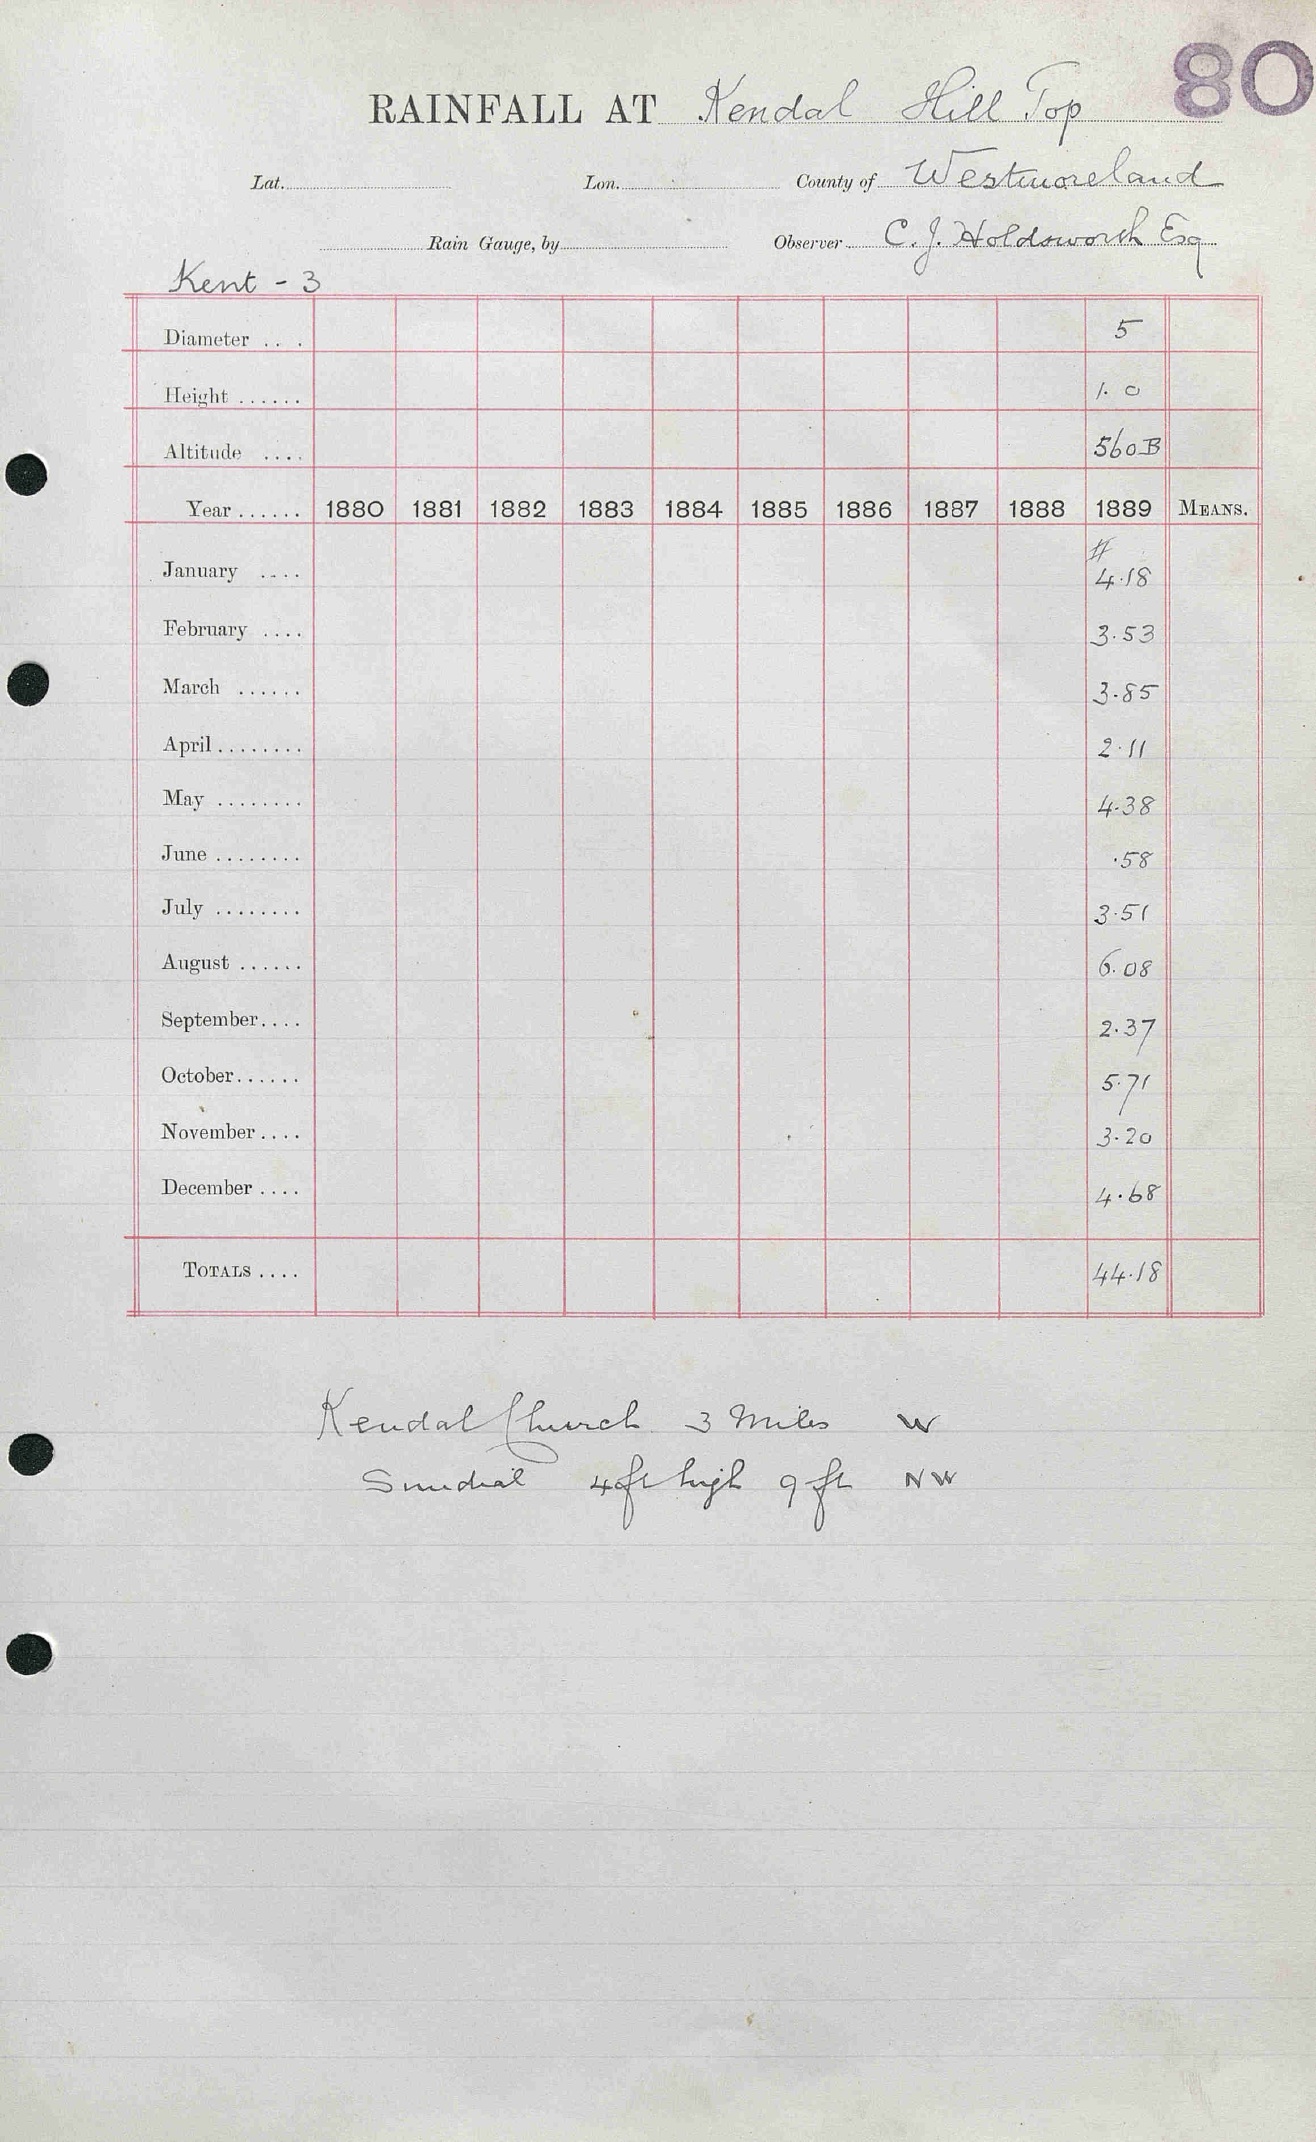 80
RAINFALL AT Kendal Hill Top
Lat. Lon. County of Westmoreland
Rain Gauge, by Observer C. J. Holdsworth Esq
Kent - 3
Diameter .. . 5
Height ...... 1. 0
Altitude .... 560B
Year ...... 1880 1881 1882 1883 1884 1885 1886 1887 1888 1889 MEANS.
#
January .... 4.18
February .... 3.53
March ...... 3.85
April ........ 2.11
May ........ 4.38
June ........ .58
July ........ 3.51
August ...... 6.08
September.... 2.37
October...... 5.71
November.... 3.20
December .... 4.68
TOTALS .... 44.18
Kendal Church 3 Miles W
Sundial 4ft high 9 ft NW